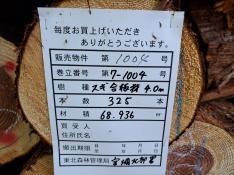 毎度お買上げいただき
ありがとうございます。
販売物件 第 1004 号
巻立番号 第 7-1004 号
樹種 スギ合板材 4.0m
本数 325 本
材積 68.936 ㎥
買受人
住所氏名
搬出期限 自 年 月 日
至 年 月 日
東北森林管理局